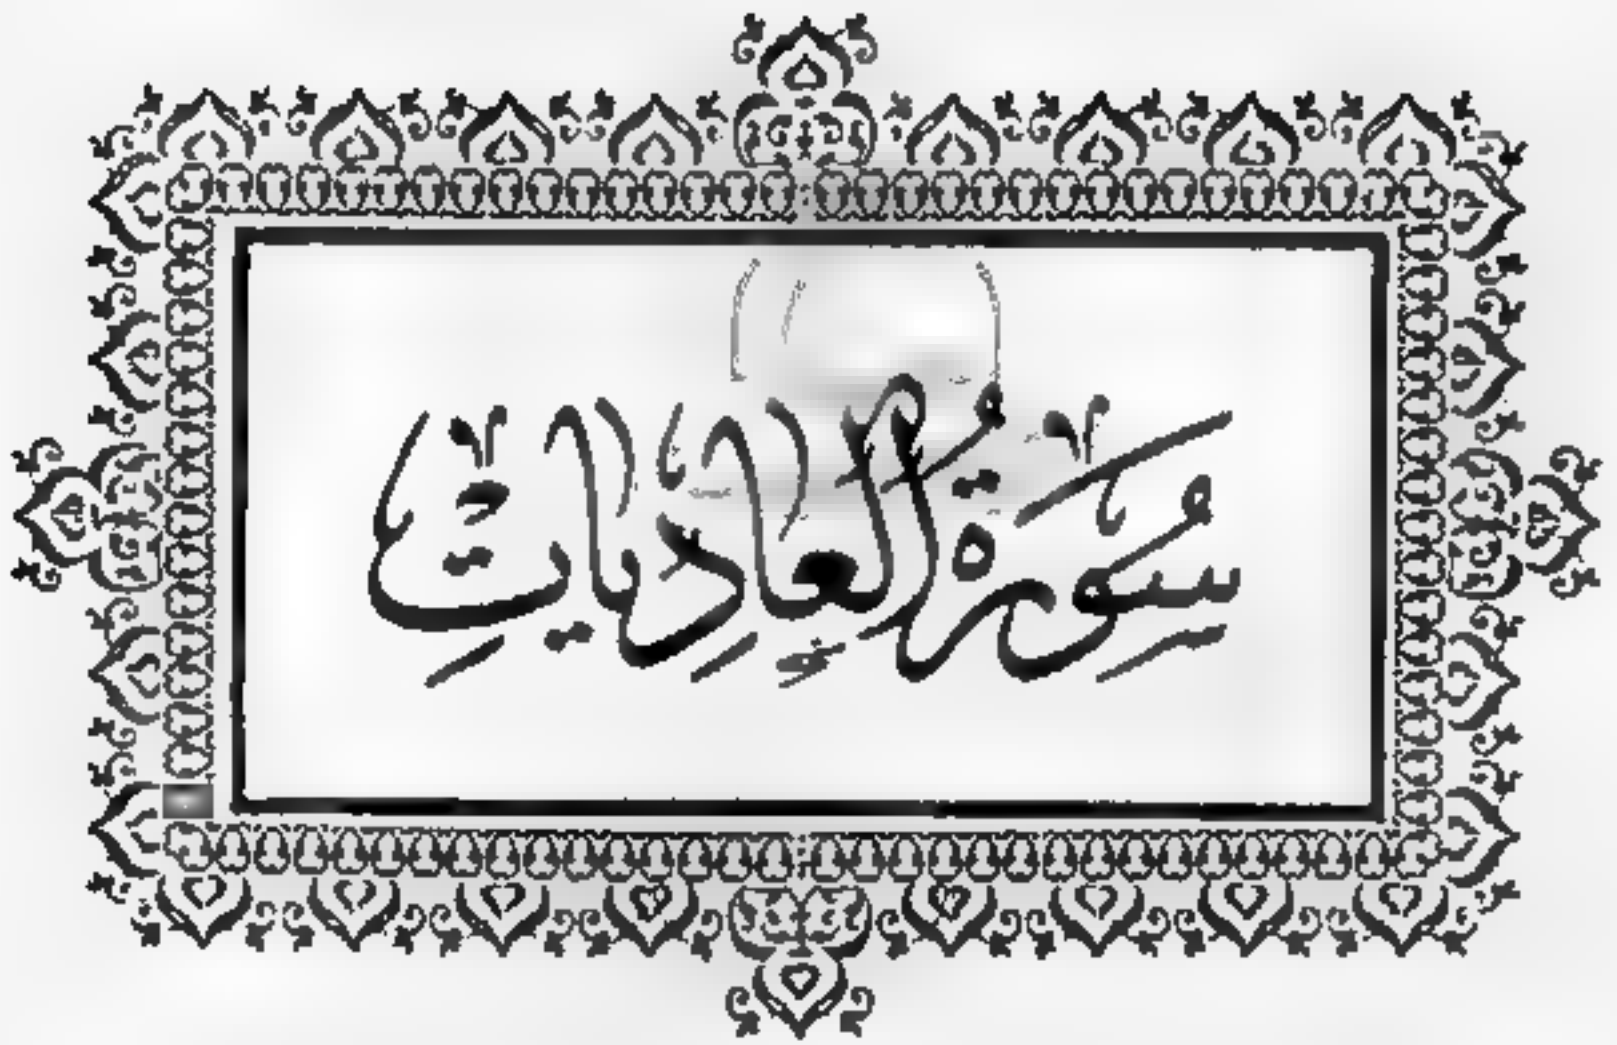 سُورَةُ الْعَادِيَاتِ